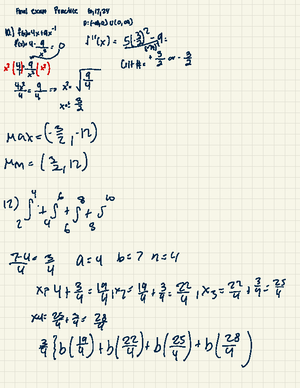 Final exam Practice 6a,12,24
D=(-∞,0)∪(0,∞)
10.) f(x)=4x+9x⁻¹
f'(x)=4-9/x²=0
x²(4)=9/x²(x²)
4x²/4=9/4 => x²=√9/4
x=±3/2
Crit #= +3/2 or -3/2
Max=(-3/2,-12)
Min=(3/2,12)
12) 2∫4 + 4∫6 + 6∫8 + 8∫10
7-4/4=3/4 a=4 b=7 n=4
x1=4+3/4=19/4, x2=19/4+3/4=22/4, x3=22/4+3/4=25/4
x4=25/4+3/4=28/4
3/4{b(19/4)+b(22/4)+b(25/4)+b(28/4)